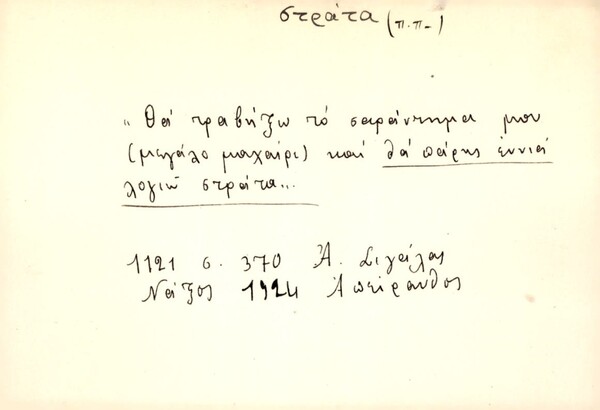 στράτα (π.π-)
„ Θά τραβήξω τό σαράντημα μου
(μεγάλο μαχαίρι) καί θά πάρης ἐννιά
λογιῶ στράτα...
1121 σ. 370 Ἀ. Σιγάλας
Νάξος 1924 Ἀπείρανθος